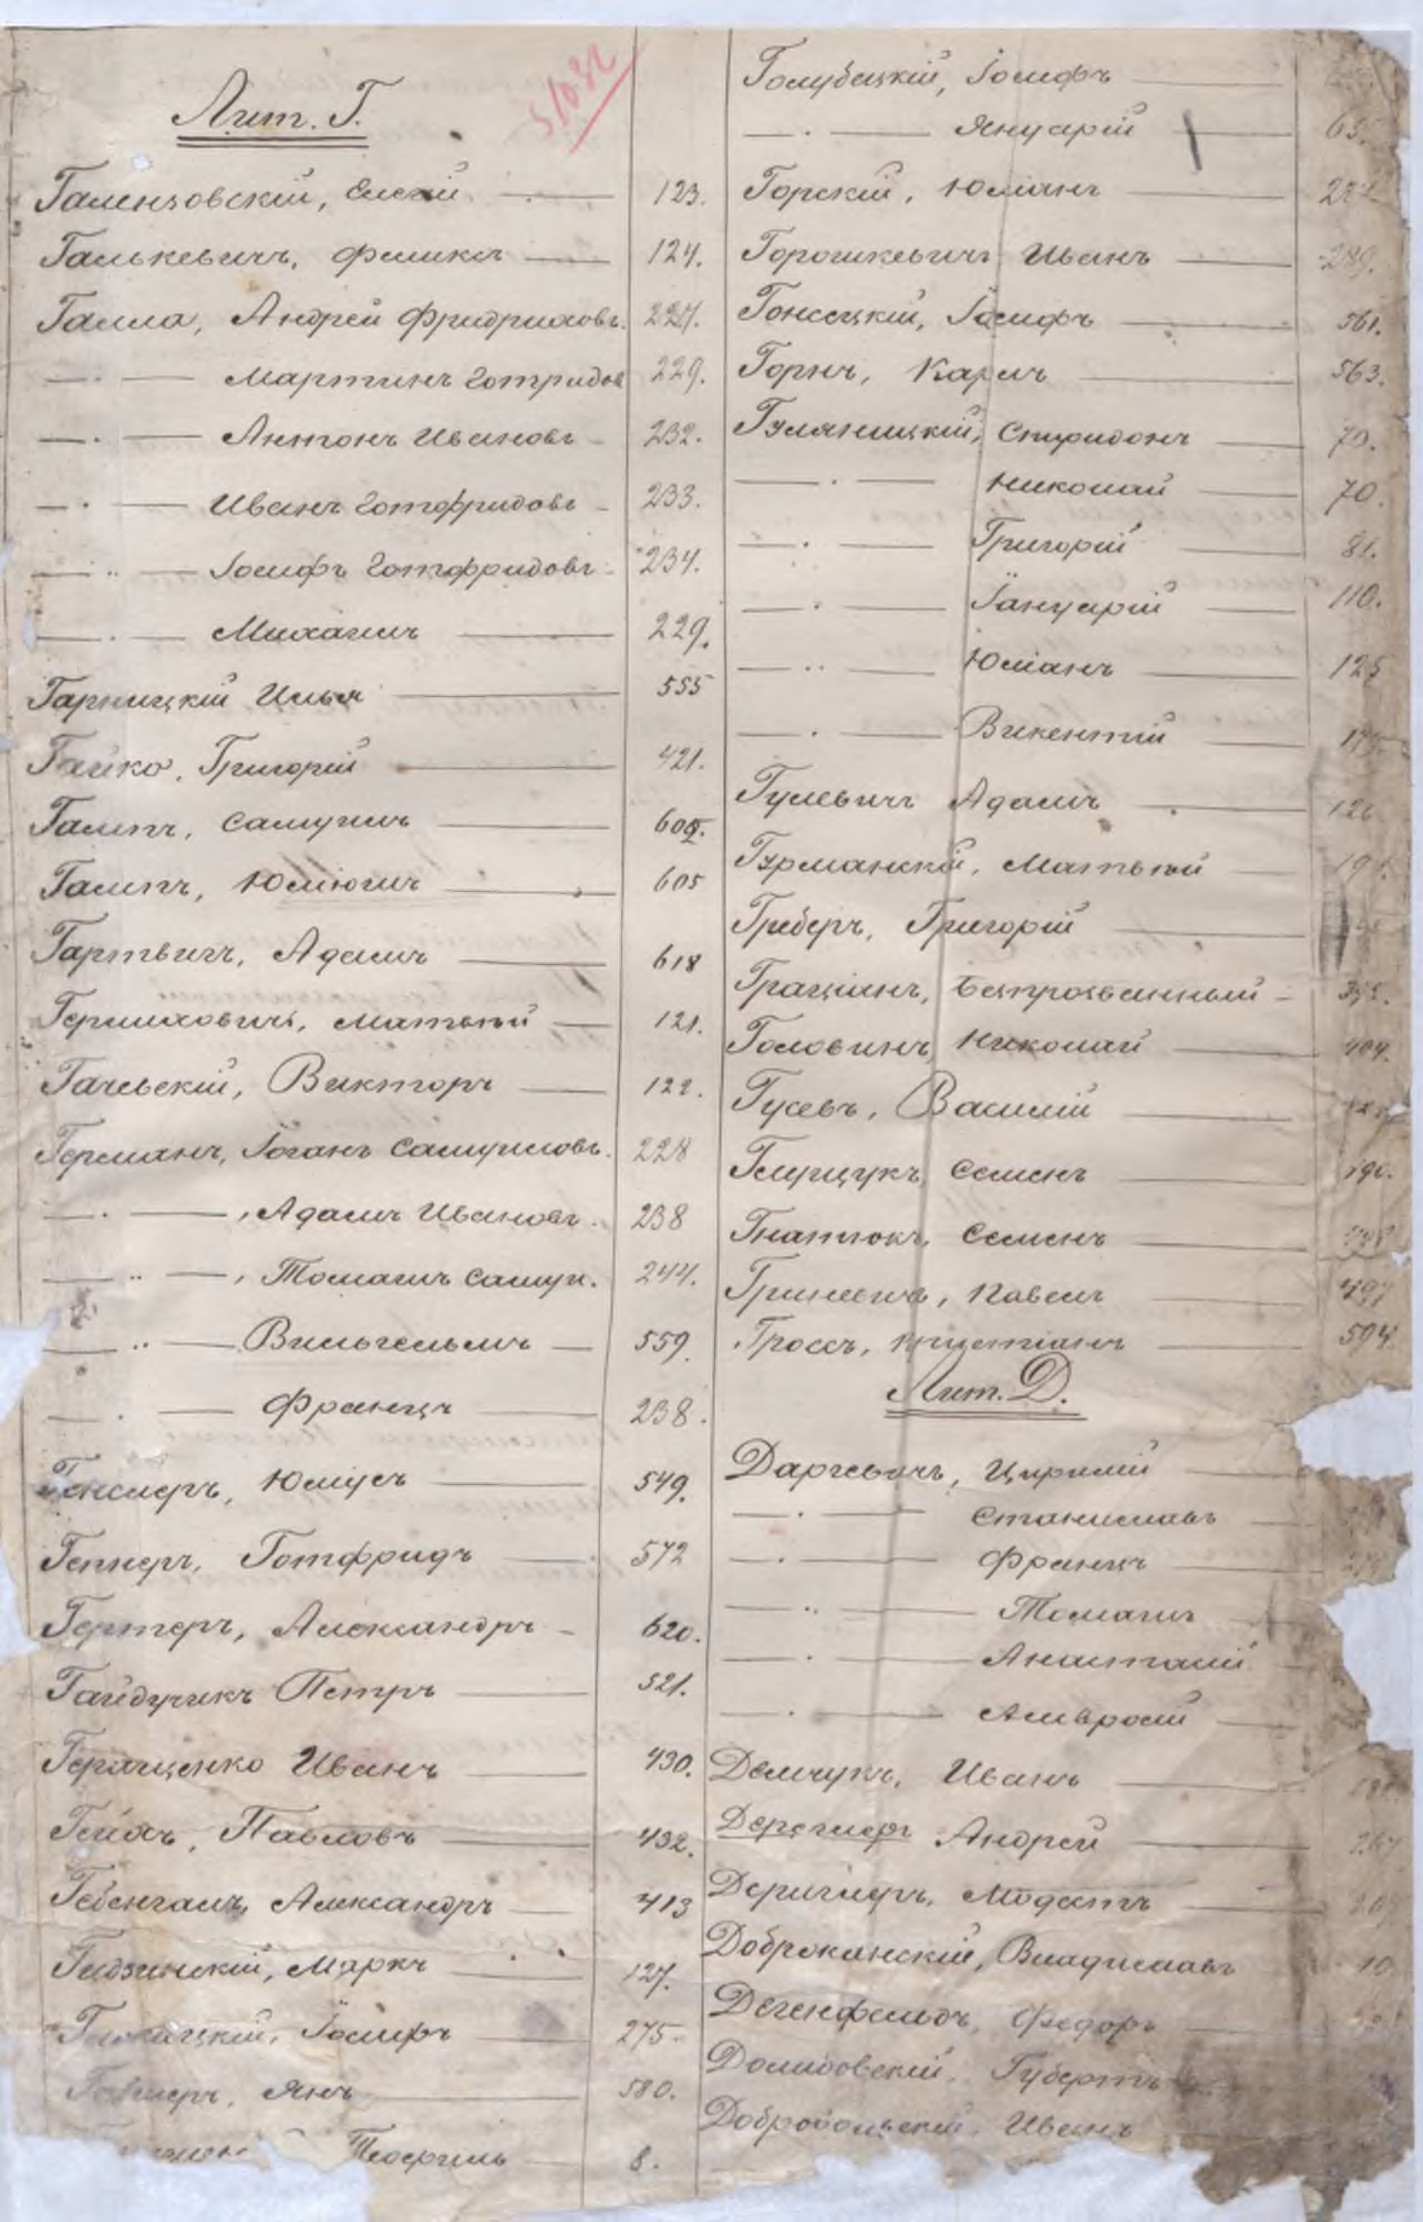 Лит. Г.
51032
Галензовскій, Елисѣй 123.
Галькевичъ, Феликсъ 124.
Галла, Андрей Фридриховъ. 227.
—·— Мартинъ Готридов 229.
—·— Антонъ Ивановъ 232.
—·— Иванъ Готфридовъ 233.
—··— Іосифъ Готфридовъ 234.
—·— Михаилъ 229.
Гарницкій Илья 555
Гайко, Григорій 421.
Галлъ, Самуилъ
Галлъ, Юліюсъ 605
Гартвигъ, Адамъ 618
Герлиховичъ, Матвѣй 121.
Гачевскій, Викторъ 122.
Германъ, Іоганъ Самуиловъ. 228
—·—, Адамъ Ивановъ. 238
—··—, Томашъ Самуи. 244.
—··— Вильгельмъ 559.
—·— Францъ 238.
Генслеръ, Юліусъ 549.
Геннеръ, Готфридъ 572
Гертеръ, Александръ 620.
Гайдучикъ Петръ 521.
Геращенко Иванъ 430.
Гейхъ, Павловъ 432.
Гебенгалъ, Александръ 413
Гидзинскій, Маркъ 127.
Іосифъ 275
Янъ 580.
Теофиль 8.
Голубецкій, Іосифъ
—·— Януарій
Горскій, Юліанъ
Горошкевичъ Иванъ 289.
Гонсецкій, Іосифъ 561.
Горнъ, Карлъ 563.
Гуляницкій, Спиридонъ 70.
—·— Николай 70.
—·— Григорій 81.
—·— Іануарій 110.
—··— Юліанъ 125
—·— Викентій
Гулевичъ Адамъ 126
Гурманскій, Матвѣй
Греберъ, Григорій
Граціанъ, Безпрозванный
Головинъ, Николай 404.
Гусевъ, Василій
Глущукъ, Семенъ 190.
Гнатюкъ, Семенъ
Гринлевъ, Павелъ 497
Гроссъ, Христіанъ 594.
Лит. Д.
Даргевичъ, Цирилій
—·— Станиславъ
—·— Францъ
—··— Томашъ
—·— Анастасій
—·— Амвросій
Демчукъ, Иванъ
Андрей 267
Дериглеръ, Модестъ
Доброканскій, Владиславъ 10
Дегенфельдъ, Федоръ
Долидовскій, Губертъ
Добровольскій, Иванъ